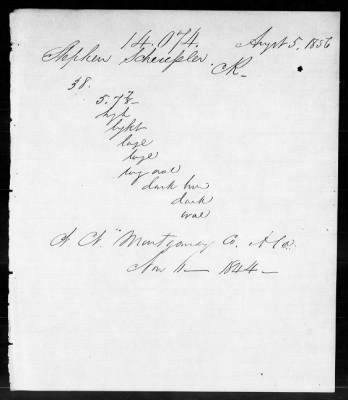 14.074. Augst 5, 1856
Stephen Scheussler. CK
38.
5.7½
high
light
large
large
reg oval
dark brn
dark
oval
N. N. Montgomery Co. Ala.
Nov 11 1844